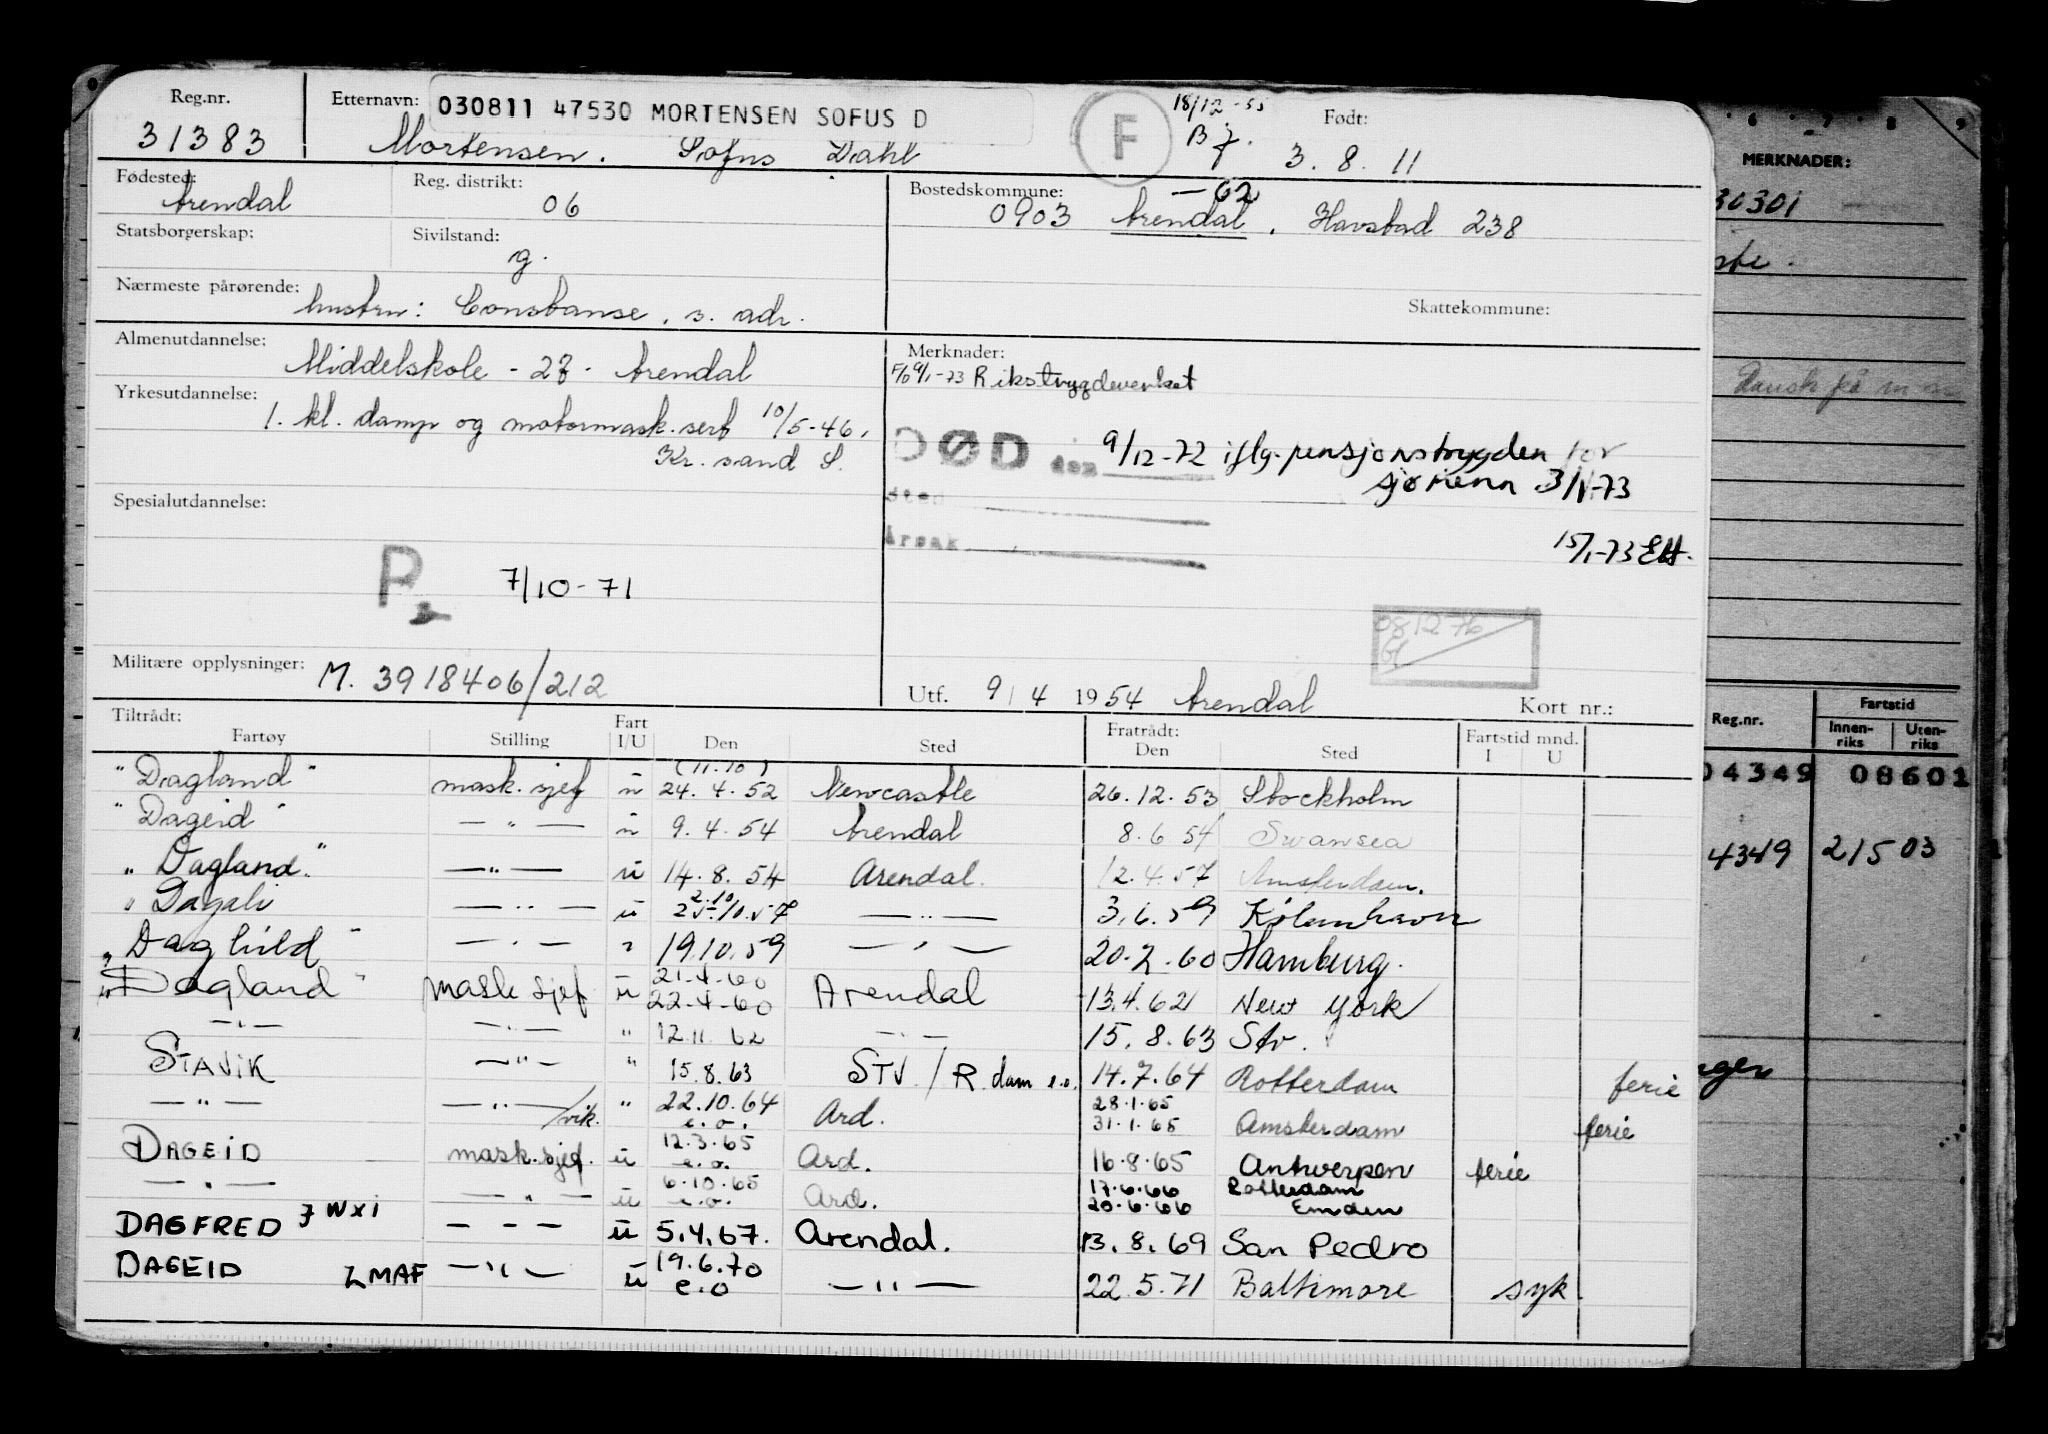 Reg.nr. Etternavn: 030811 47530 MORTENSEN SOFUS D F 18/12-55 Født:
31383 Mortensen. Sofus Dahl B 3.8.11
Fødested: Reg. distrikt: Bostedskommune: -62
Arendal 06 0903 Arendal, Havstad 238
Statsborgerskap: Sivilstand:
g.
Nærmeste pårørende: Skattekommune:
hustru: Constanse, s. adr.
Almenutdannelse: Merknader:
Middelskole - 27 - Arendal 9/1-73 Rikstrygdeverket
Yrkesutdannelse:
1. kl. damp og motormask.sert 10/5-46,
Kr. sand S.
DØD den 9/12-72 iflg. pensjonstrygden for
sjømenn 3/1-73
sted
årsak
15/1-73 EH.
Spesialutdannelse:
P 7/10-71
081276
Militære opplysninger: M. 3918406/212
Utf. 9/4 1954 Arendal Kort nr.:
Tiltrådt: Fart Fratrådt: Fartstid mnd.
Fartøy Stilling I/U Den Sted Den Sted I U
(11.10)
"Dagland" mask.sjef u 24.4.52 Newcastle 26.12.53 Stockholm
"Dageid" — " — u 9.4.54 Arendal 8.6 54 Swansea
"Dagland." — " — u 14.8.54 Arendal. 12.4.57 Amsterdam.
" Dagali — " — u 25.10.57 — " — 3.6.59 København
"Daghild" — " — " 19.10.59 — " — 20.2.60 Hamburg.
21.4.60
"Dagland" mask sjef u 22.4.60 Arendal 13.4.62 New York
— " — — " — " 12.11.62 — " — 15.8.63 Stv.
STAVIK — " — " 15.8.63 STV. / R.dam e.o. 14.7.64 Rotterdam ferie
— " — — " — /vik. " 22.10.64 e.o. Ard. 28.1.65
31.1.65 Amsterdam ferie
DAGEID mask.sjef. u 12.3.65 e.o. Ard. 16.8.65 Antwerpen ferie
— " — — " — u 6.10.65 e.o. Ard. 17.6.66 Rotterdam
20.6.66 Emden
DAGFRED JWXI — " — u 5.4.67. Arendal. 13.8.69 San Pedro
DAGEID LMAF — " — u 19.6.70 e.o — " — 22.5.71 Baltimore syk.
6 7 8 9
MERKNADER:
30301
Dansk på
Reg.nr. Fartstid
Innen-riks Uten-riks
04349 08601
4349 21503